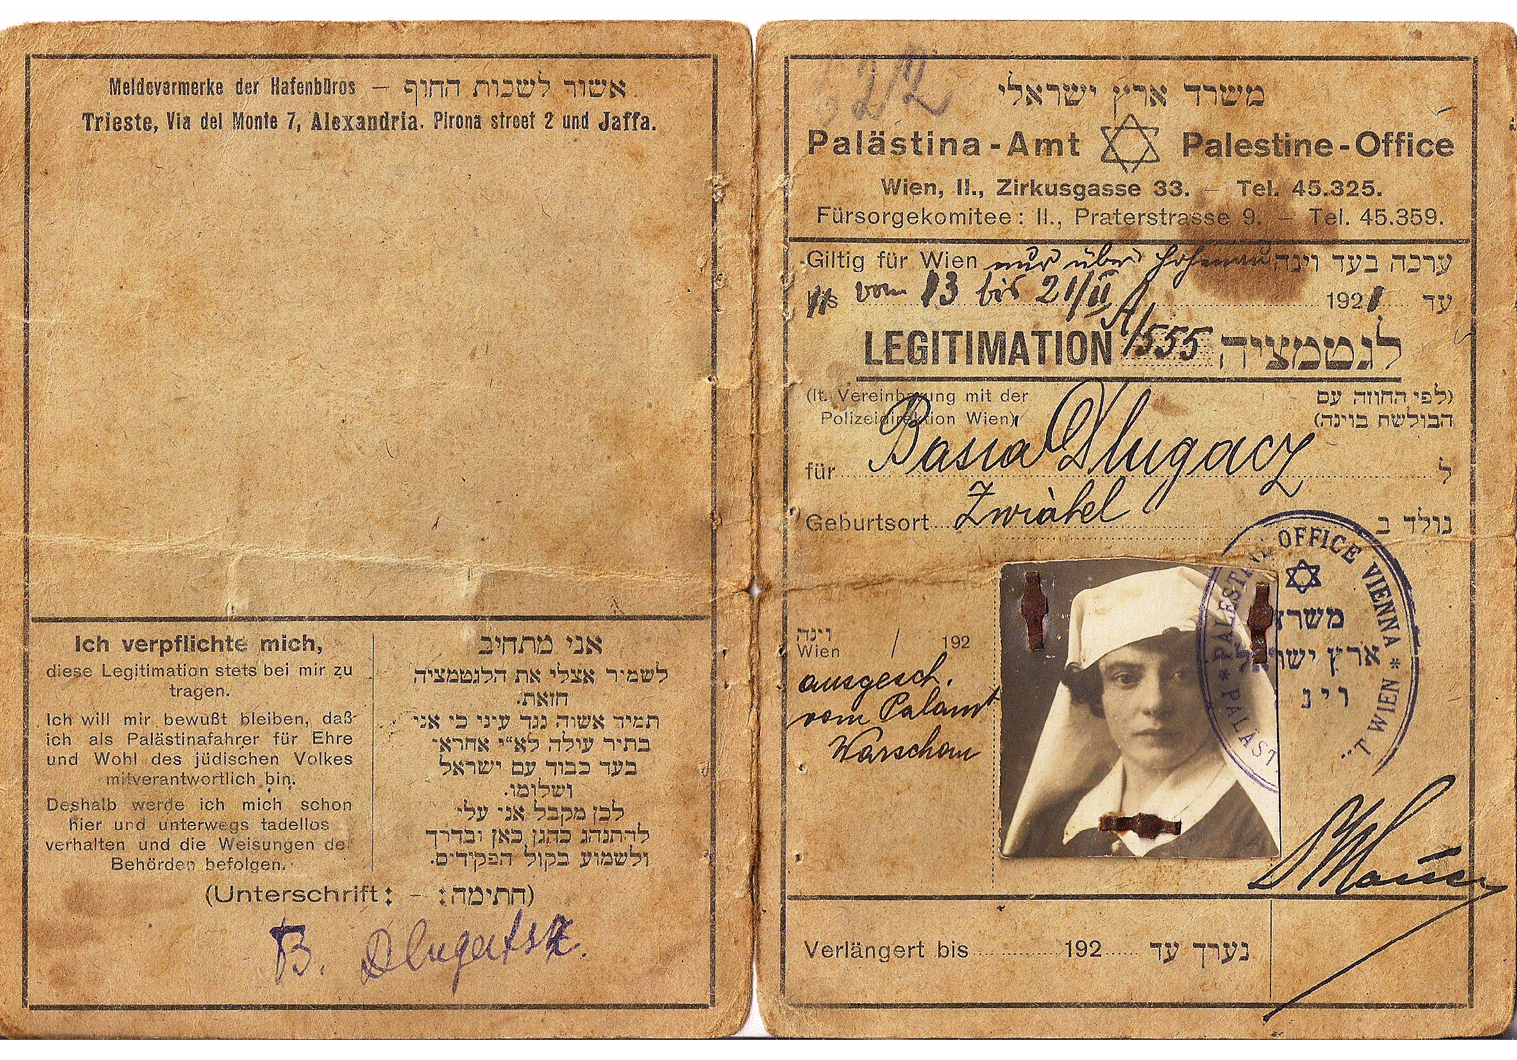 Meldevermerke der Hafenbüros — אשור לשכות החוף
Trieste, Via del Monte 7, Alexandria. Pirona street 2 und Jaffa.
Ich verpflichte mich,
diese Legitimation stets bei mir zu
tragen.
Ich will mir bewußt bleiben, daß
ich als Palästinafahrer für Ehre
und Wohl des jüdischen Volkes
mitverantwortlich bin.
Deshalb werde ich mich schon
hier und unterwegs tadellos
verhalten und die Weisungen de
Behörden befolgen.
אני מתחיב
לשמיר אצלי את הלגטמציה
הזאת.
תמיד אשוה נגד עיני כי אני
בתיר עולה לא״י אחראי
בעד כבוד עם ישראל
ושלומו.
לכן מקבל אני עלי
להתנהג כהגן כאן ובדרך
ולשמוע בקול הפקידים.
(Unterschrift: - :חתימה)
B. Dlugatsz.
212
משרד ארץ ישראלי
Palästina-Amt Palestine-Office
Wien, II., Zirkusgasse 33. — Tel. 45.325.
Fürsorgekomitee: II., Praterstrasse 9. — Tel. 45.359.
Giltig für Wien nur über Hohenau ערכה בעד וינה
bis vom 13 bis 21/II 1921 עד
LEGITIMATION A/555 לגטמציה
(lt. Vereinbarung mit der (לפי החוזה עם
Polizeidirektion Wien) הבולשת בוינה)
für Basia Dlugacz ל
Geburtsort Zwiahel נולד ב
וינה
Wien / 192
ausgesch.
vom Palamt
Warschau
PALESTINE OFFICE VIENNA * PALÄST T WIEN *
משרד
ארץ ישראל
וינ
Verlängert bis 192 נערך עד